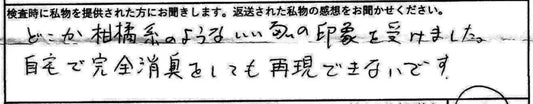 検査時に私物を提供された方にお聞きします。返送された私物の感想をお聞かせください。
どこか柑橘系のようないい匂いの印象を受けました。
自宅で完全消臭をしても再現できないです